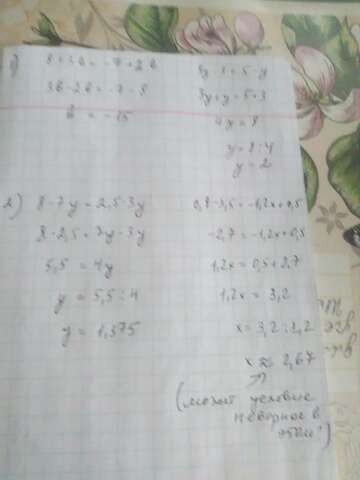 1) 8+3b = -7+2b
3b-2b = -7-8
b = -15
3y-3=5-y
3y+y=5+3
4y=8
y=8:4
y=2
2) 8-7y=2,5-3y
8-2,5=7y-3y
5,5=4y
y=5,5:4
y=1,375
0,8-3,5=-1,2x+0,5
-2,7=-1,2x+0,5
1,2x=0,5+2,7
1,2x=3,2
x=3,2:1,2
x≈2,67
(может условие
неверное в
этом?)